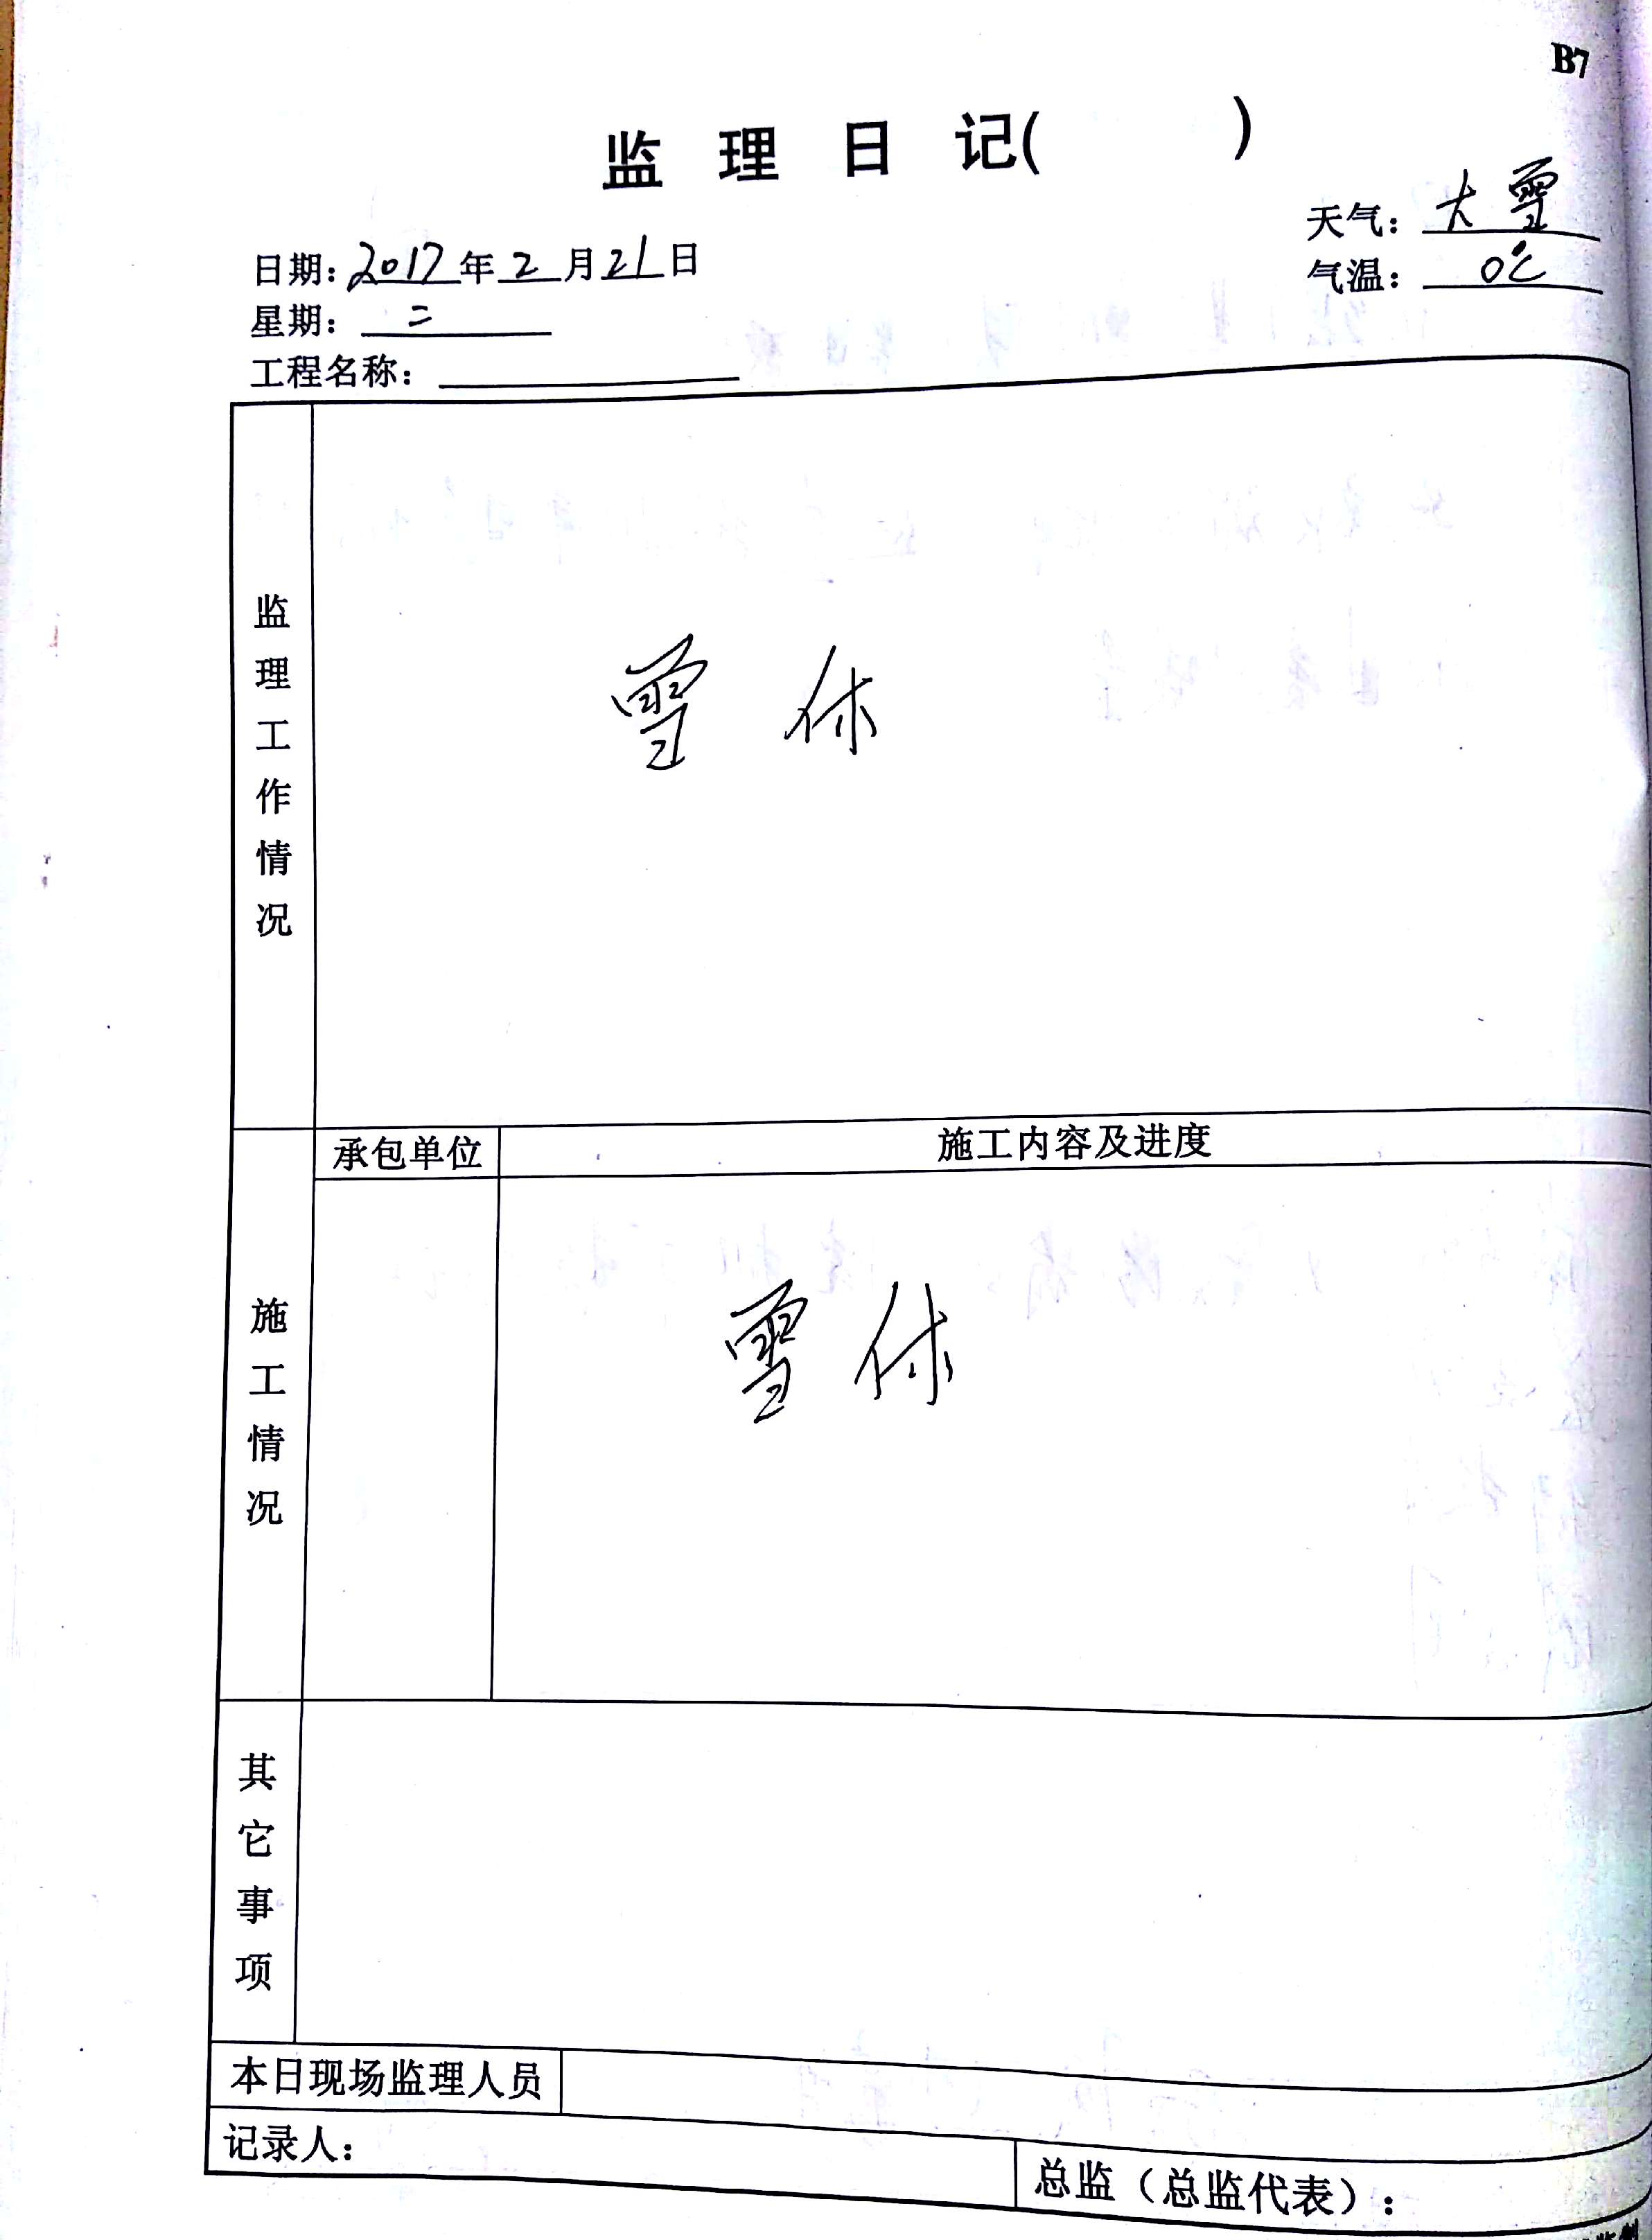 B7
监理日记(　　)
天气：大雪
日期：2017年2月21日
气温：0℃
星期：二
工程名称：
监理工作情况
雪休
承包单位
施工内容及进度
施工情况
雪休
其它事项
本日现场监理人员
记录人：
总监（总监代表）：